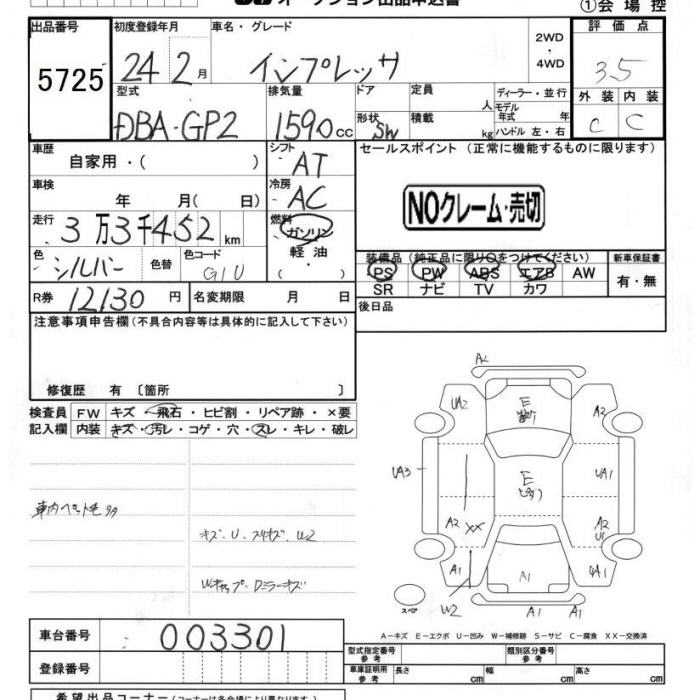 オークション出品申込書
①会場控
出品番号 初度登録年月 車名・グレード 2WD・4WD 評価点
5725 24 2月 インプレッサ 3.5
型式 排気量 ドア 定員 人 ディーラー・並行 外装 内装
DBA-GP2 1590cc 形状 SW 積載 kg モデル年式 年 ハンドル 左・右 C C
車歴 自家用・( ) シフト AT セールスポイント (正常に機能するものに限ります)
車検 年 月( 日) 冷房 AC
NOクレーム・売切
走行 3万3千452km 燃料 ガソリン 軽油 ( ・ )
色 シルバー 色替 色コード G1U
装備品 (純正品に限り○をつけてください) 新車保証書
PS PW ABS エアB AW 有・無
SR ナビ TV カワ
R券 12130円 名変期限 月 日 後日品
注意事項申告欄 (不具合内容等は具体的に記入して下さい)
修復歴 有 〔箇所 〕
検査員 FW キズ・飛石・ヒビ割・リペア跡・×要
記入欄 内装 キズ・汚レ・コゲ・穴・スレ・キレ・破レ
車内ペット毛
キズ・U・スリキズ・W2
キズ
A2
UA2 E A2
UA3 E UA1
A2 XX A2
U1
A1 A1 UA1
W2 A1 A1
スペア
A-キズ E-エクボ U-凹み W-補修跡 S-サビ C-腐食 XX-交換済
車台番号 003301 型式指定番号 参考 類別区分番号 参考
登録番号 車庫証明用 参考 長さ cm 幅 cm 高さ cm
希望出品コーナー